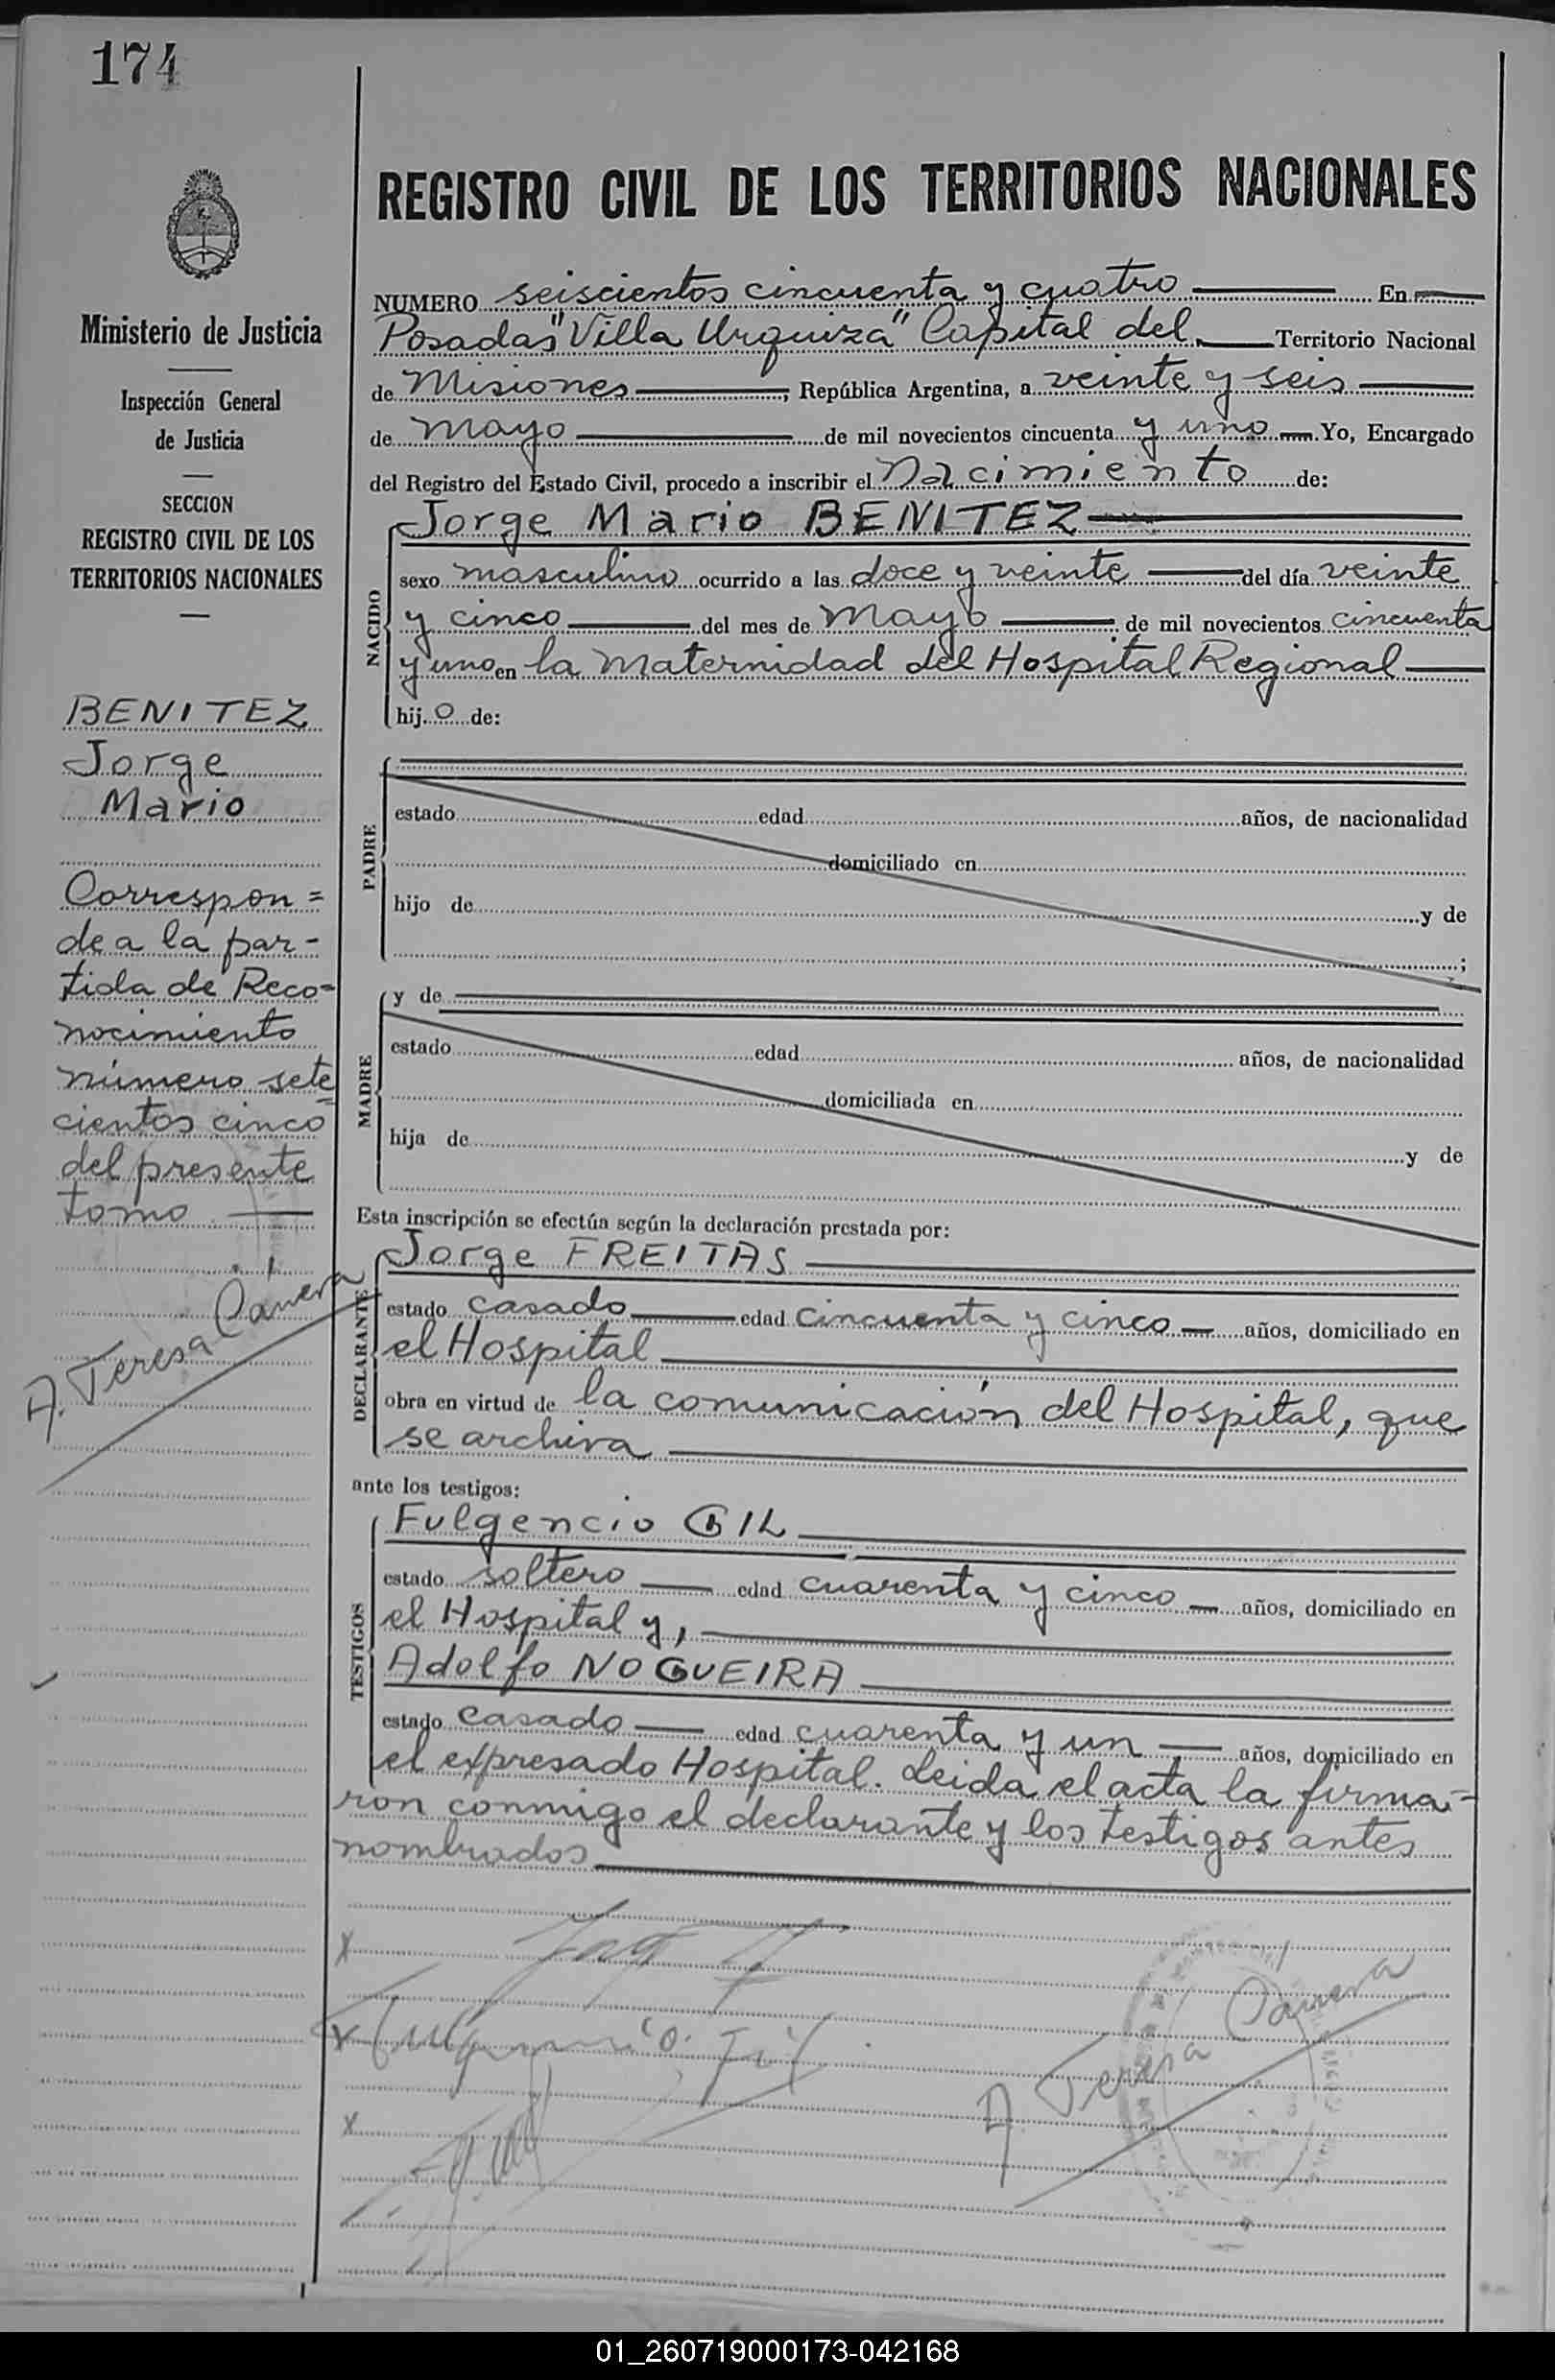 174
REGISTRO CIVIL DE LOS TERRITORIOS NACIONALES
Ministerio de Justicia
Inspección General
de Justicia
SECCION
REGISTRO CIVIL DE LOS
TERRITORIOS NACIONALES
BENITEZ
Jorge
Mario
Correspon=
de a la par-
tida de Reco=
nocimiento
número sete=
cientos cinco
del presente
tomo
A. Teresa
NUMERO seiscientos cincuenta y cuatro En
Posadas "Villa Urquiza" Capital del Territorio Nacional
de Misiones, República Argentina, a veinte y seis
de mayo de mil novecientos cincuenta y uno Yo, Encargado
del Registro del Estado Civil, procedo a inscribir el Nacimiento de:
NACIDO
Jorge Mario BENITEZ
sexo masculino ocurrido a las doce y veinte del día veinte
y cinco del mes de Mayo de mil novecientos cincuenta
y uno en la Maternidad del Hospital Regional
hijo de:
PADRE
estado edad años, de nacionalidad
domiciliado en
hijo de y de
;
MADRE
y de
estado edad años, de nacionalidad
domiciliada en
hija de y de
Esta inscripción se efectúa según la declaración prestada por:
DECLARANTE
Jorge FREITAS
estado casado edad cincuenta y cinco años, domiciliado en
el Hospital
obra en virtud de la comunicación del Hospital, que
se archiva
ante los testigos:
TESTIGOS
Fulgencio GIL
estado soltero edad cuarenta y cinco años, domiciliado en
el Hospital y,
Adolfo NOGUEIRA
estado casado edad cuarenta y un años, domiciliado en
el expresado Hospital. Leida el acta la firma=
ron conmigo el declarante y los testigos antes
nombrados
x
x
x
A. Teresa
01_260719000173-042168